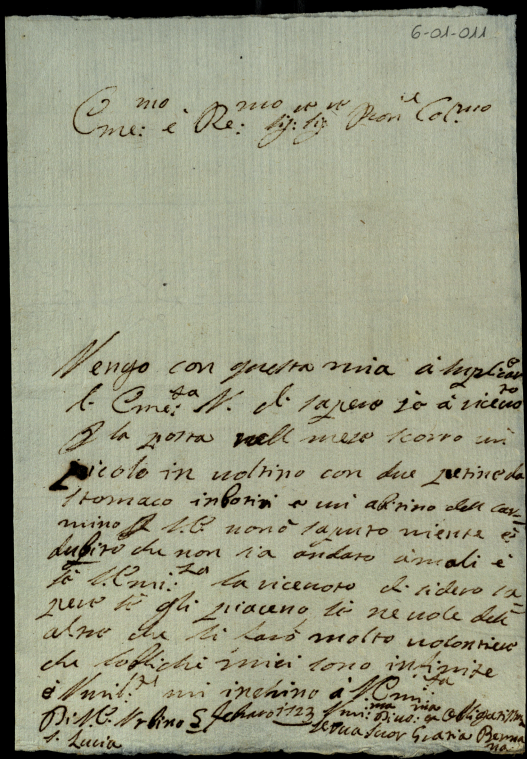 6-01-011
Eme: mo è Re: mo Sig: Sig: Pron Col: mo
Vengo con questa mia à suplicar
l Eme: za V. di sapere se à riceuto
p la posta nell mese scorso un
picolo in uoltino con due petine da
stomaco in borini e un abitino dell Car=
mino p Me non ò saputo niente è
dubito che non sia andato à mali è
se l'Emi: za la riceuoto di sidero sa=
pere se gli piaceno se ne uole dell
altro che li farò molto uolontiere
che lobblichi miei sono infinite
è Vmil: te mi inchino à V. Emi: za
Di V. E. Vrbino 5 1723 Vmi: ma Diuo: ma Obligatissma
S. Lucia Serua Suor